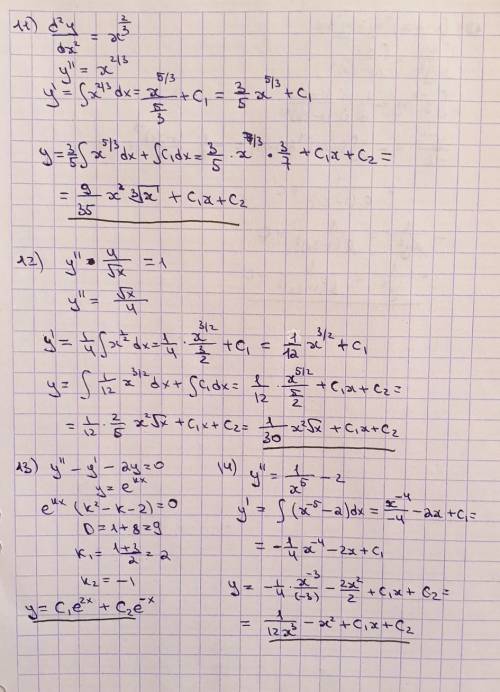 11) d²y/dx² = x^(2/3)
y'' = x^(2/3)
y' = ∫x^(2/3)dx = x^(5/3)/(5/3) + C₁ = 3/5 x^(5/3) + C₁
y = 3/5 ∫x^(5/3)dx + ∫C₁dx = 3/5 · x^(7/3) · 3/7 + C₁x + C₂ =
= 9/35 x² ∛x + C₁x + C₂
12) y'' · 4/√x = 1
y'' = √x/4
y' = 1/4 ∫x^(1/2)dx = 1/4 · x^(3/2)/(3/2) + C₁ = 1/12 x^(3/2) + C₁
y = ∫ 1/12 x^(3/2)dx + ∫C₁dx = 1/12 · x^(5/2)/(5/2) + C₁x + C₂ =
= 1/12 · 2/5 x²√x + C₁x + C₂ = 1/30 x²√x + C₁x + C₂
13) y'' - y' - 2y = 0
y = e^(kx)
e^(kx) (k² - k - 2) = 0
D = 1 + 8 = 9
k₁ = (1+3)/2 = 2
k₂ = -1
y = C₁e^(2x) + C₂e^(-x)
14) y'' = 1/x⁵ - 2
y' = ∫(x^(-5) - 2)dx = x^(-4)/-4 - 2x + C₁ =
= -1/4 x^(-4) - 2x + C₁
y = -1/4 · x^(-3)/(-3) - 2x²/2 + C₁x + C₂ =
= 1/(12x³) - x² + C₁x + C₂